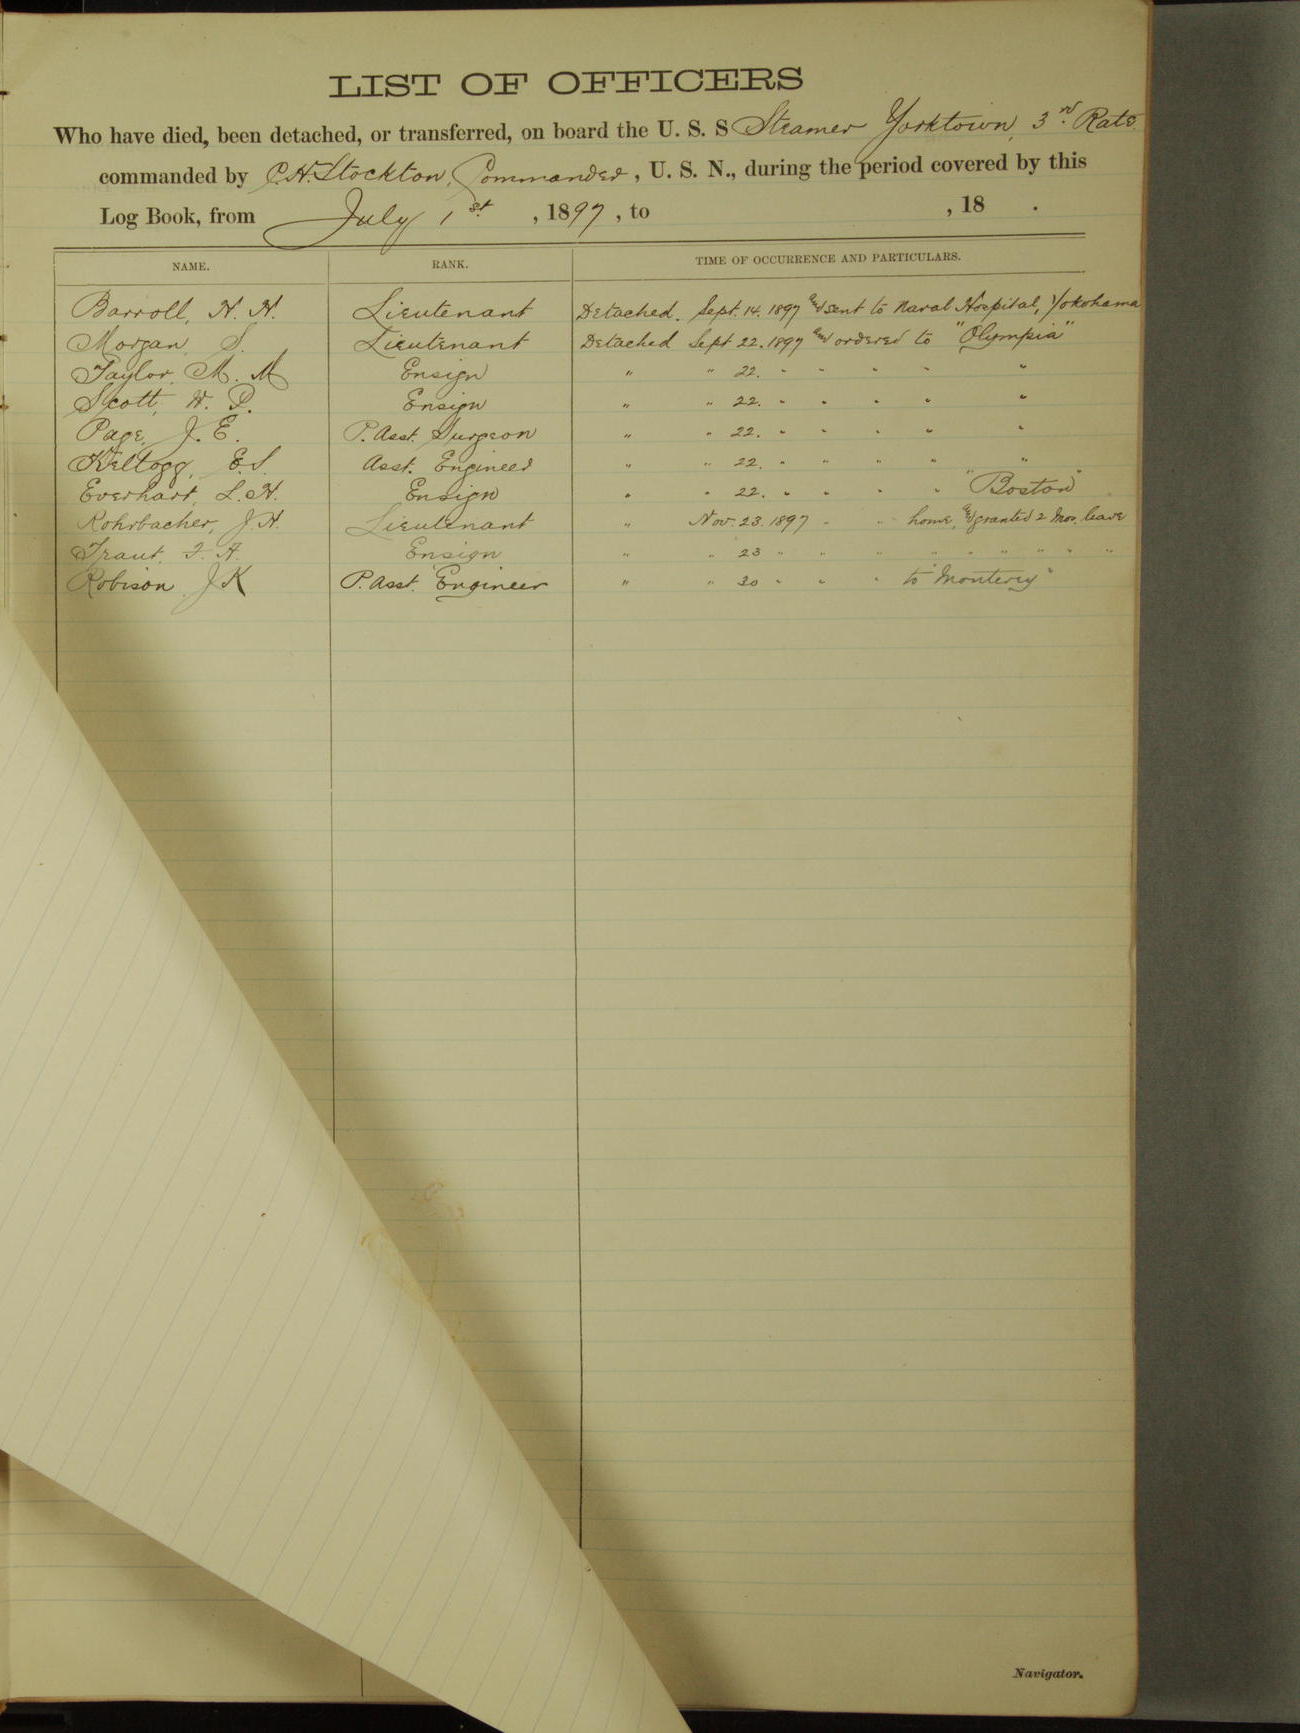 LIST OF OFFICERS
Who have died, been detached, or transferred, on board the U. S. S Steamer Yorktown, 3rd. Rate
commanded by C.H. Stockton, Commander, U. S. N., during the period covered by this
Log Book, from July 1st. , 1897, to , 18 .
NAME. RANK. TIME OF OCCURRENCE AND PARTICULARS.
Barroll, H. H. Lieutenant Detached. Sept. 14. 1897 and sent to Naval Hospital, Yokohama
Morgan, S. Lieutenant Detached Sept 22. 1897 and ordered to "Olympia"
Taylor, M. M Ensign " " 22. " " " " "
Scott, W. P. Ensign " " 22. " " " " "
Page, J. E. P. Asst. Surgeon " " 22. " " " " "
Kellogg, E.S. Asst. Engineer " " 22. " " " " "
Everhart L. H. Ensign " " 22. " " " " "Boston"
Rohrbacher, J. H. Lieutenant " Nov. 23. 1897 " " home, and granted 2 Mos. leave
Traut, F. A. Ensign " " 23 " " " " " " " " " "
Robison, J K P. Asst. Engineer " " 30 " " " to "Monterey"
Navigator.